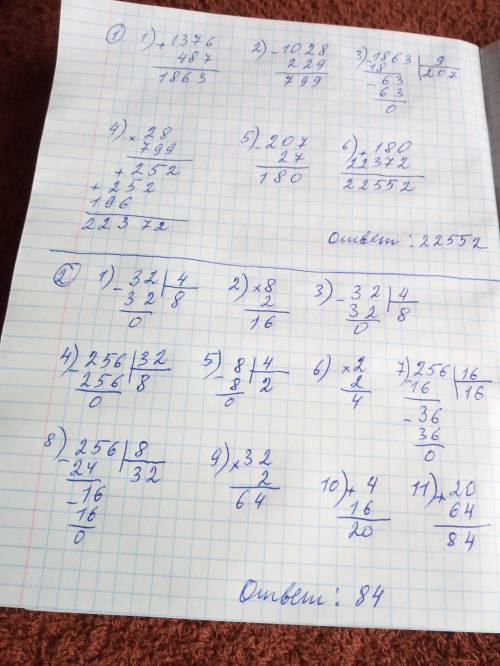 ① 1) +1376 2) -1028 3) -1863 | 9
487 229 18 | 207
1863 799 -63
63
0
4) ×28 5) -207 6) +180
799 27 22372
+252 180 22552
+252
196
22372
Ответ: 22552
② 1) -32 | 4 2) ×8 3) -32 | 4
32 | 8 2 32 | 8
0 16 0
4) -256 | 32 5) -8 | 4 6) ×2 7) -256 | 16
256 | 8 8 | 2 2 16 | 16
0 0 4 -36
36
0
8) -256 | 8 9) ×32 10) +4 11) +20
24 | 32 2 16 64
-16 64 20 84
16
0
Ответ: 84